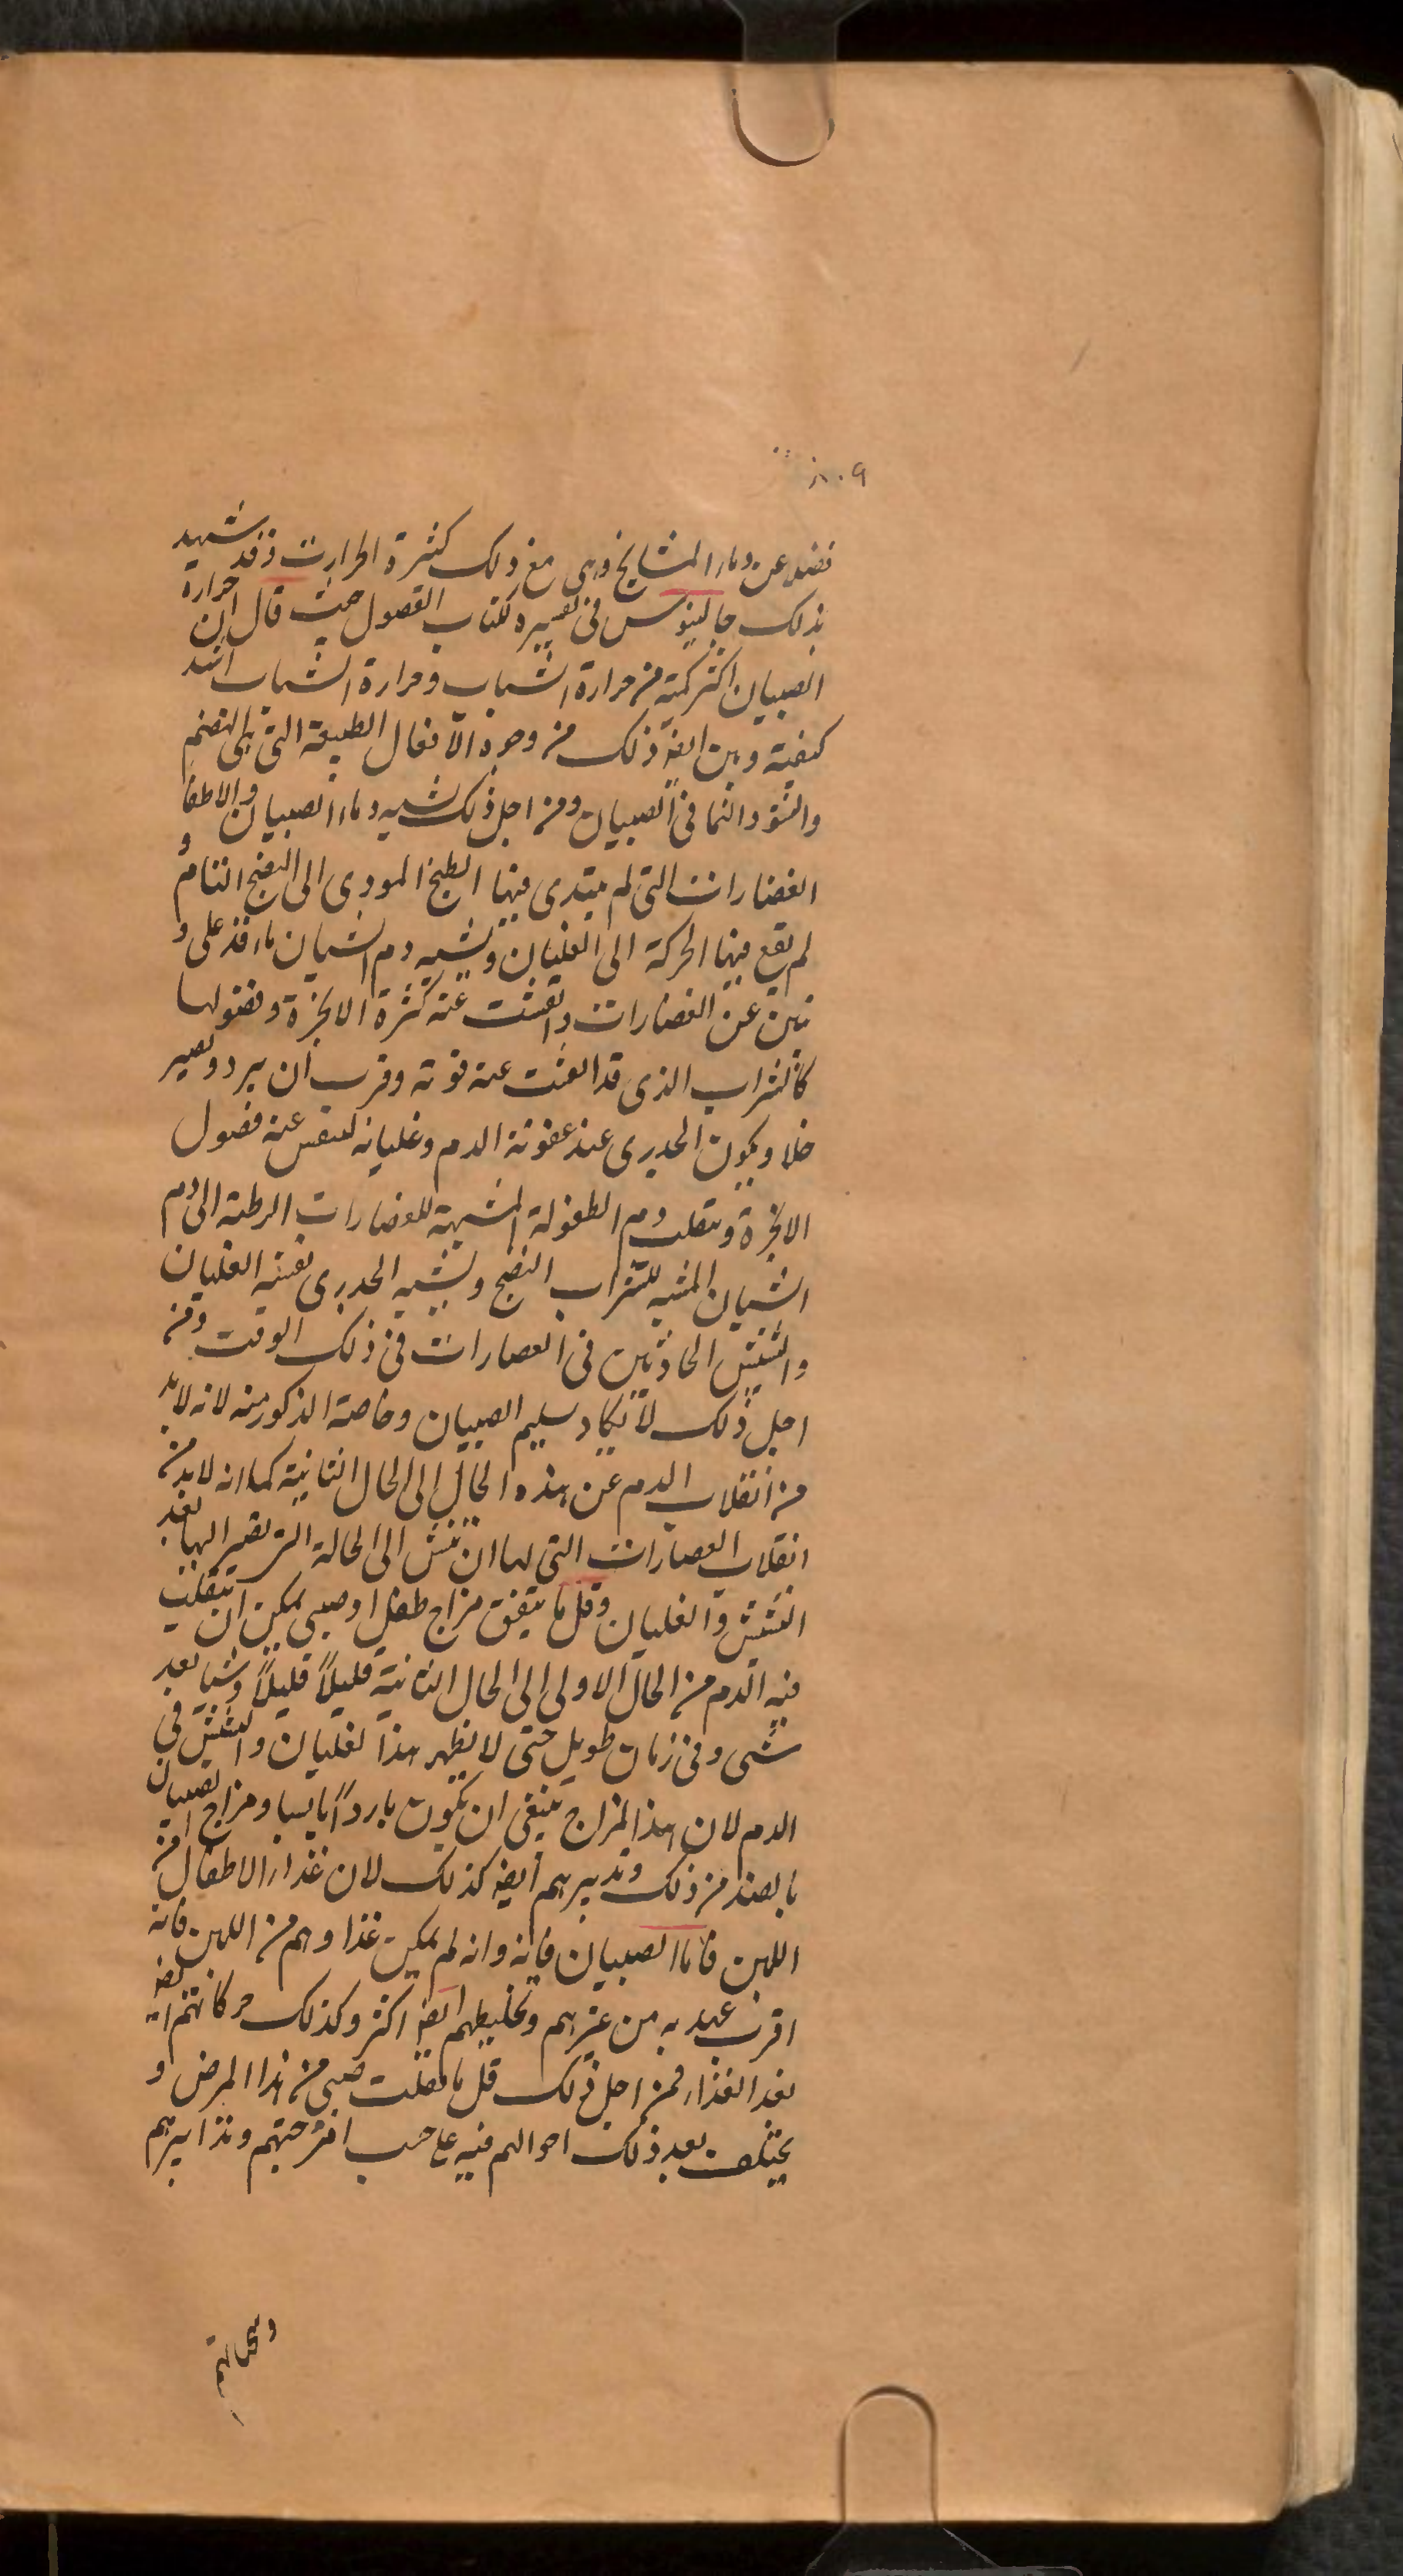 ۸۰۹
فضلا عن دماء المشايخ وهى مع ذلك كثيرة الحرارت وقد شهد
بذلك جالينوس فى تفسيره لكتاب الفصول حيث قال ان حرارة
الصبيان اكثر كمية من حرارة الشباب وحرارة الشباب اشد
كيفية وبين ايضا ذلك من وجوه الافعال الطبيعة التى هى الهضم
والنشو والنما فى الصبيان ومن اجل ذلك شبيه دماء الصبيان والاطفا
العصارات التى لم يبتدى فيها الطبخ المودى الى النضج التام و
لم يقع فيها الحركة الى الغليان ويشبه دم الشبان ماء قد غلى و
نش عن العصارات وانفشت عنه كثرة الابخرة وفضولها
كالشراب الذى قد انفشت عنه قوته وقرب ان يبرد ويصير
خلا ويكون الجدرى عند عفونة الدم وغليانه لينفس عنه فضول
الابخرة وينقلب دم الطفولة المشبهة للعصارات الرطبة الى دم
الشبان المشبه للشراب النضج ويشبه الجدرى نفسه الغليان
والنشيش الحادثين فى العصارات فى ذلك الوقت ومن
اجل ذلك لا يكاد يسلم الصبيان وخاصة الذكور منه لانه لابد
من انقلاب الدم عن هذه الحال الى الحال الثانية كما انه لابد من
انقلاب العصارات التى لها ان تنش الى الحالة التى تصير اليها بعد
النشيش والغليان وقل ما يتفق مزاج طفل او صبى يمكن ان ينقلب
فيه الدم من الحال الاولى الى الحال الثانية قليلاً قليلاً وشيا بعد
شى وفى زمان طويل حتى لا يظهر هذا لغليان والنشيش فى
الدم لان هذا المزاج ينبغى ان يكون بارداً يابسا ومزاج الصبيان
بالضد من ذلك وتدبيرهم ايضا كذلك لان غذاء الاطفال من
اللبن فاما الصبيان فانه وانه لم يكن غذاوهم من اللبن فانه
اقرب عهد به من غيرهم وتخليطهم ايضا اكثر وكذلك حركاتهم ايضا
بعد الغذاء فمن اجل ذلك قل ما يفلت صبى من هذا المرض و
يختلف بعد ذلك احوالهم فيه على حسب امزجتهم وتدابيرهم